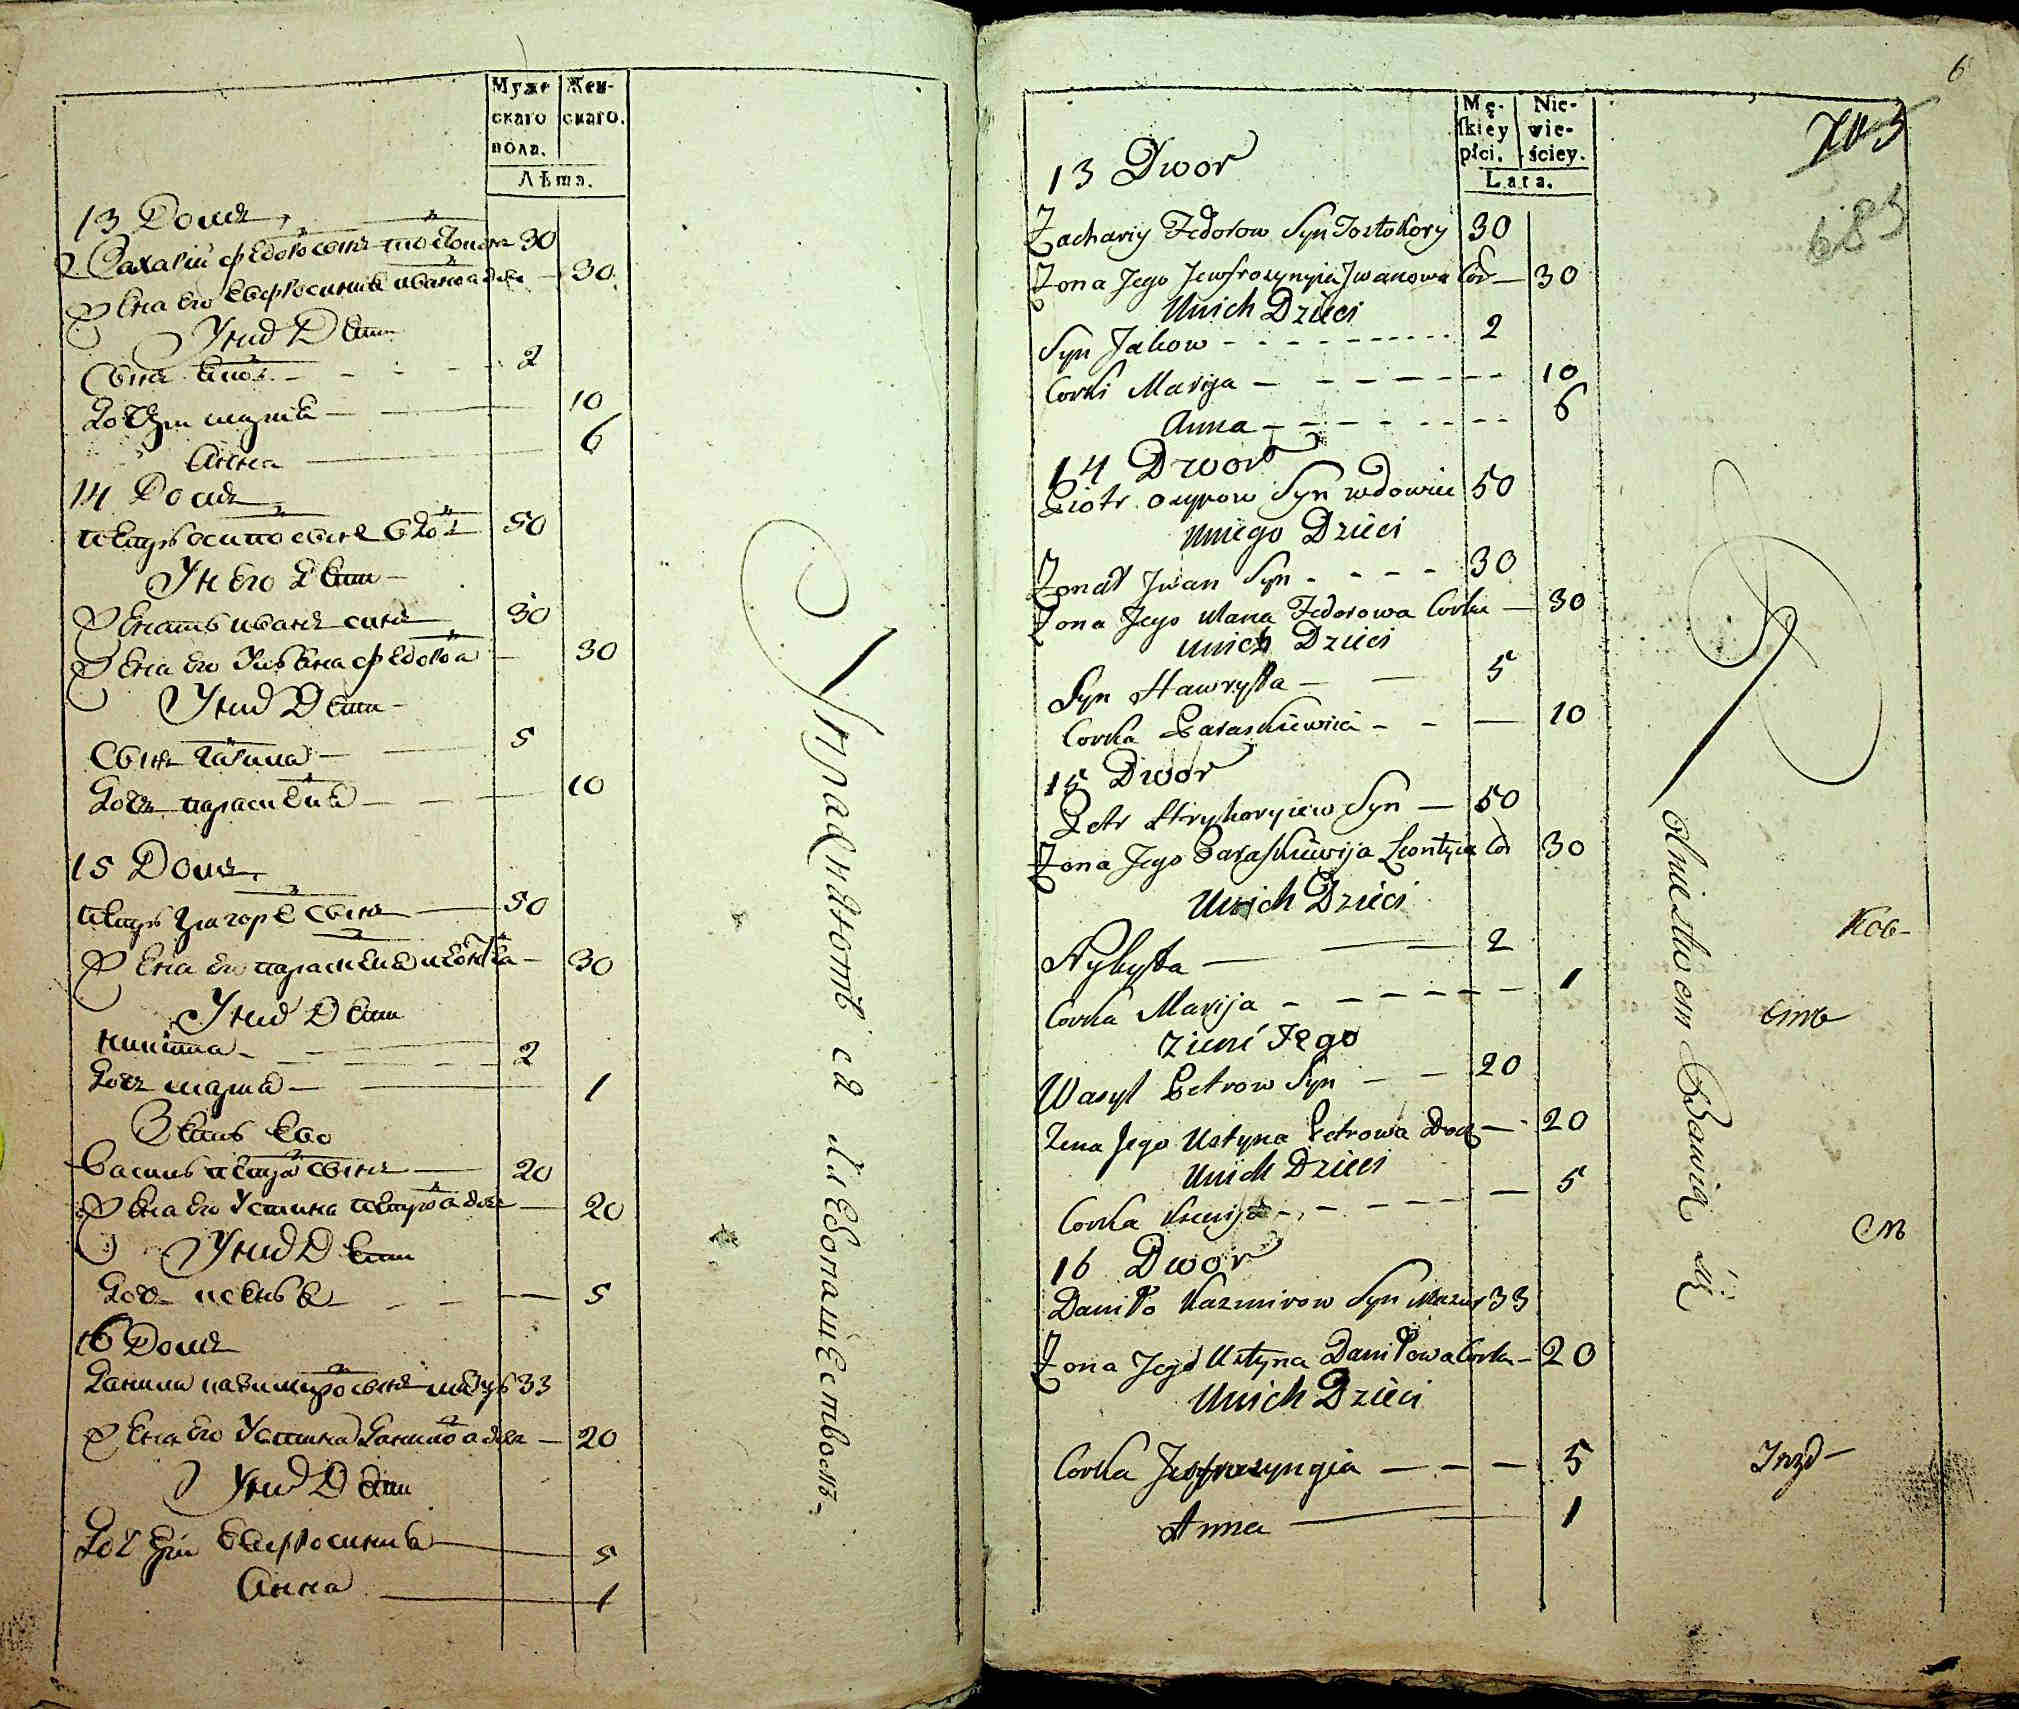 Муже
скаго
пола.
Жен-
скаго.
Лѣта.
13 Домъ
Сахарій Федоро сынъ 30
Жена его Евфросинія Ивано а дочь — 30
У них Дети
Сынъ 2
Дочери Марія — 10
Анна — 6
14 Домъ
Петръ Осипо сынъ вдо 50
У него Дети —
Женатъ Иванъ сынъ 30
Жена его Ульяна Федоро а — 30
У них Дети —
Сынъ Гаврила — 5
Дочь Параскевія — 10
15 Домъ
Петръ Григоре сынъ — 50
Жена его Параскевія — 30
У них Дети
Никита — 2
Дочь Марія — 1
Зять Его
Василь Петро сынъ — 20
Жена его Устина Петро а дочь — 20
У них Дети
Дочь — 5
16 Домъ
Данила Казимиро сынъ Мазуръ 33
Жена его Устина Данило а дочь — 20
У них Дети
Дочери Евфросинія — 5
Анна — 1
Упражняютъся хлебопашествомъ
6
Mę-
skiey
płci.
Nie-
wie-
ściey.
Lata.
703
685
13 Dwor
Zachariy Fedorow Syn 30
Zona Jego Jewfrozynyia Jwanowa Cor — 30
Unich Dzieci
Syn Jakow - - - 2
Corki Marija - - - 10
Anna - - - 6
14 Dwor
Piotr Osypow Syn wdowiec 50
Uniego Dzieci
Zonat Jwan Syn - - - 30
Zona Jego Ulana Fedorowa Corka — 30
Unich Dzieci
Syn Hawryła — 5
Corka Paraskiewia - - 10
15 Dwor
Petr Hryhoryiew Syn — 50
Zona Jego Paraskiewija Leontyia Cor 30
Unich Dzieci
Nykyta — 2
Corka Marija - - - 1
Zient Jego
Wasyl Petrow Syn — 20
Zena Jego Ustyna Petrowa Docz — 20
Unich Dzieci
Corka Ksenija - - - 5
16 Dwor
Daniło Kazmirow Syn Mazur 33
Zona Jego Ustyna Daniłowa Corka — 20
Unich Dzieci
Corka Jewfrozyngia — 5
Anna — 1
Rolnictwem Bawią się